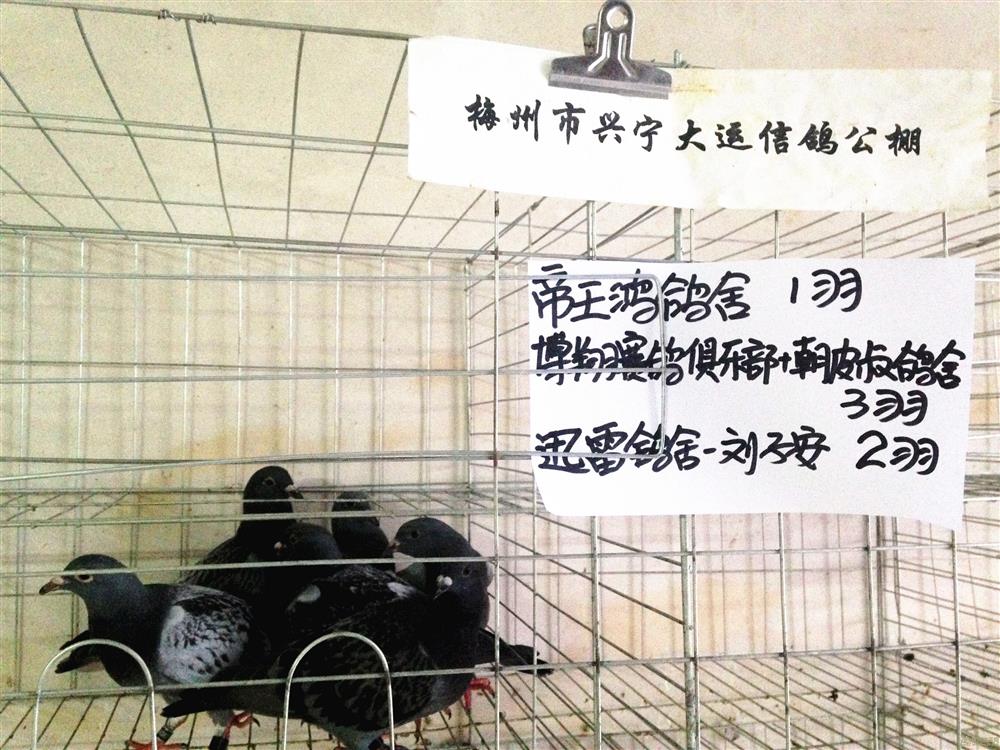 梅州市兴宁大运信鸽公棚
帝王鸿鸽舍 1羽
博翔赛鸽俱乐部+朝皮叔鸽舍
3羽
迅雷鸽舍-刘安 2羽